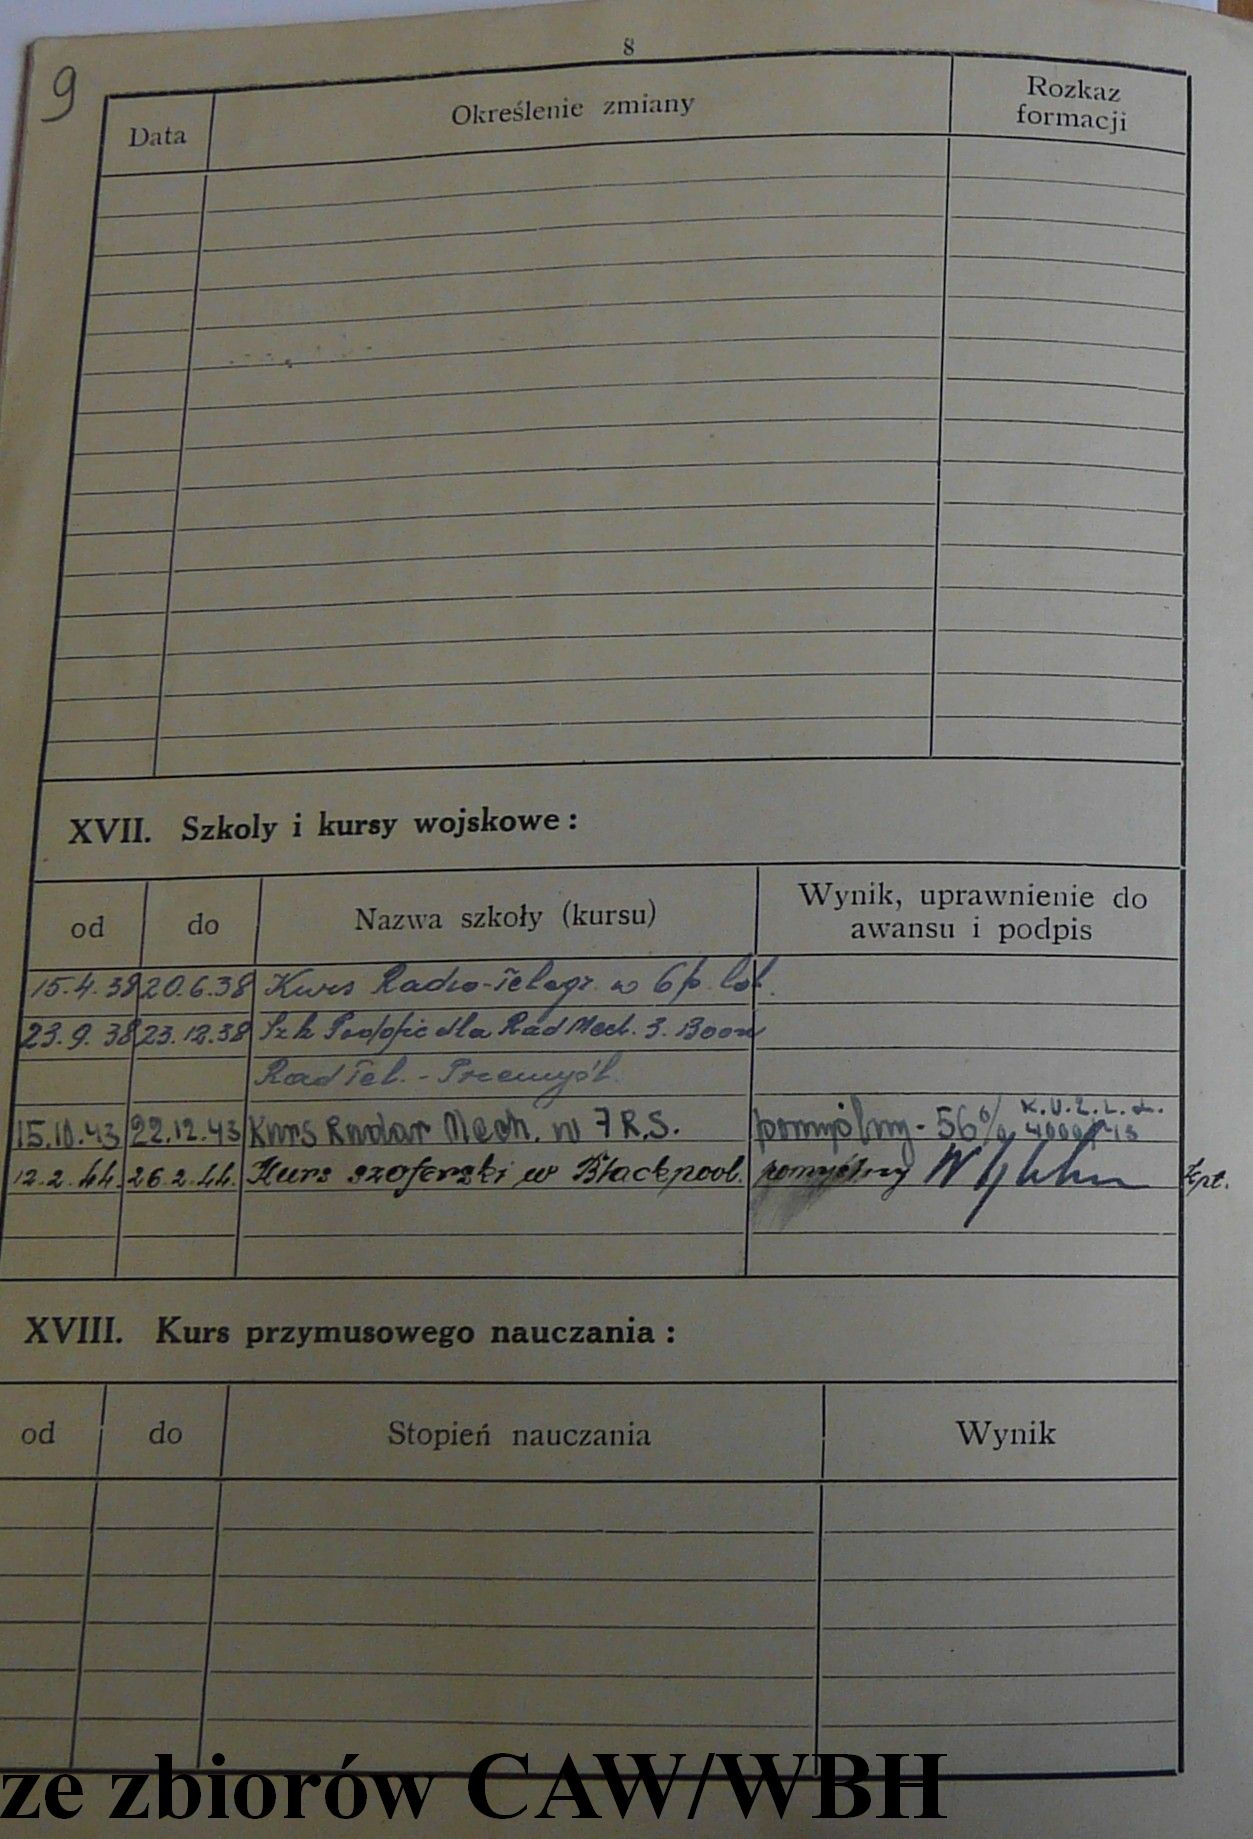 8
9
Data Określenie zmiany Rozkaz formacji
XVII. Szkoly i kursy wojskowe :
od do Nazwa szkoły (kursu) Wynik, uprawnienie do awansu i podpis
15.4.38 20.6.38 Kurs Radio-Telegr. w 6 p. lot.
23.9.38 23.12.38 Szk Podofic dla Rad Mech. 3. Baon
Rad Tel. - Przemyśl.
15.10.43 22.12.43 Kurs Radar Mech. w 7 R.S. pomyślny - 56%
12.2.44. 26.2.44. Kurs szoferski w Blackpool. pomyślny kpt.
XVIII. Kurs przymusowego nauczania :
od do Stopień nauczania Wynik
ze zbiorów CAW/WBH